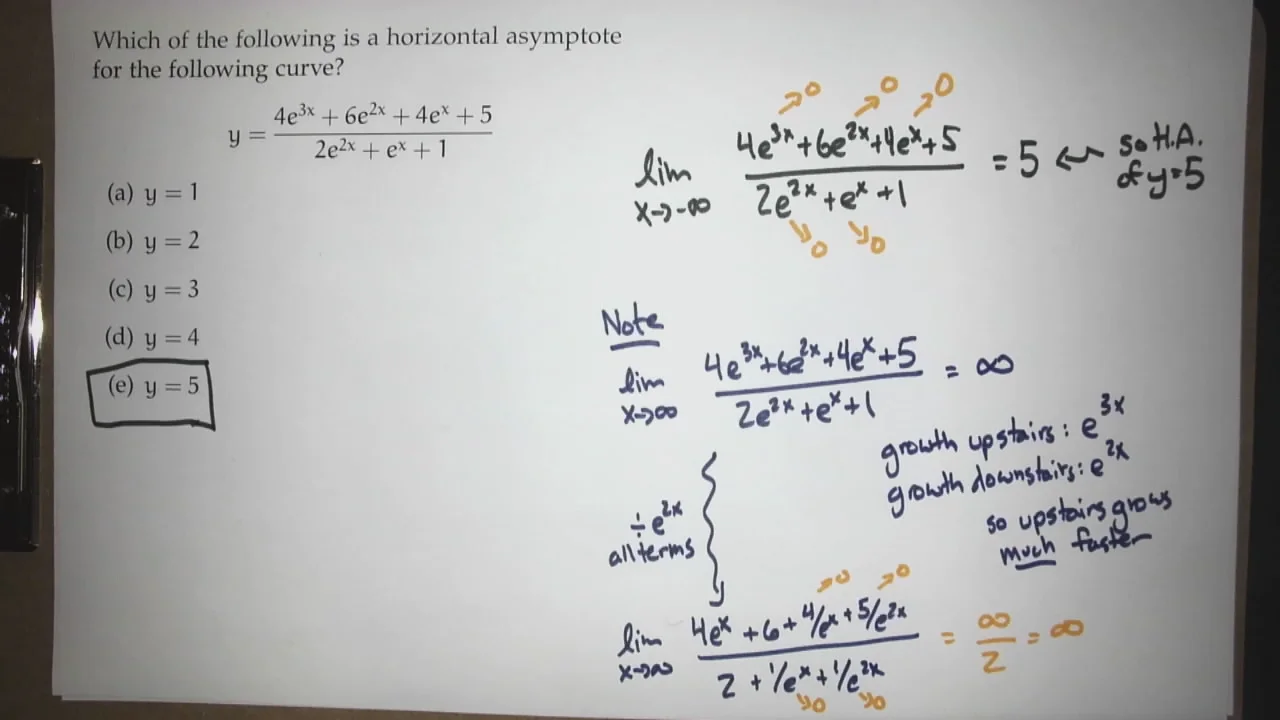 Which of the following is a horizontal asymptote
for the following curve?
y = (4e^{3x} + 6e^{2x} + 4e^x + 5) / (2e^{2x} + e^x + 1)
(a) y = 1
(b) y = 2
(c) y = 3
(d) y = 4
(e) y = 5
→0 →0 →0
lim x→-∞ (4e^{3x}+6e^{2x}+4e^x+5) / (2e^{2x}+e^x+1) = 5 ← so H.A. of y=5
→0 →0
Note
lim x→∞ (4e^{3x}+6e^{2x}+4e^x+5) / (2e^{2x}+e^x+1) = ∞
growth upstairs: e^{3x}
growth downstairs: e^{2x}
so upstairs grows
much faster
÷e^{2x}
all terms
→0 →0
lim x→∞ (4e^x+6+4/e^x+5/e^{2x}) / (2+1/e^x+1/e^{2x}) = ∞/2 = ∞
→0 →0